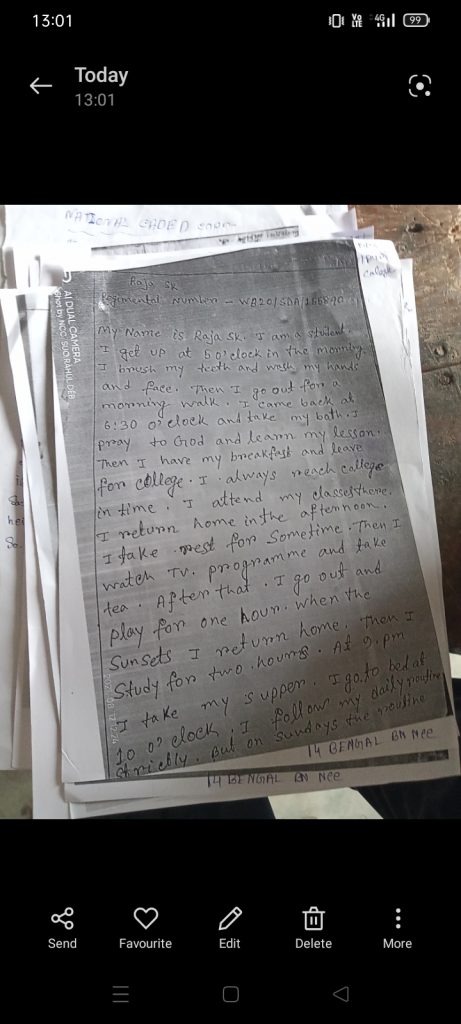 13:01
Vo LTE 4G 99
Today
13:01
NATIONAL
AI DUAL CAMERA
Shot by NCC SUO RAHUL DEB
Raja SK
Regimental Number -
My Name is Raja SK. I am a student.
I get up at 5 o'clock in the morning.
I brush my teeth and wash my hands
and face. Then I go out for a
morning walk. I came back at
6:30 o'clock and take my bath. I
pray to God and learn my lesson.
Then I have my breakfast and leave
for college. I always reach college
in time. I attend my classes there.
I return home in the afternoon.
I take rest for Sometime. Then I
watch TV. programme and take
tea. After that. I go out and
play for one hour. When the
Sunsets I return home. Then I
Study for two hours. At 9. pm
I take my supper. I go to bed at
10 o'clock. I follow my daily routine
strictly. But on sundays the routine
14 BENGAL BN Ncc
14 BENGAL BN Ncc
Send
Favourite
Edit
Delete
More